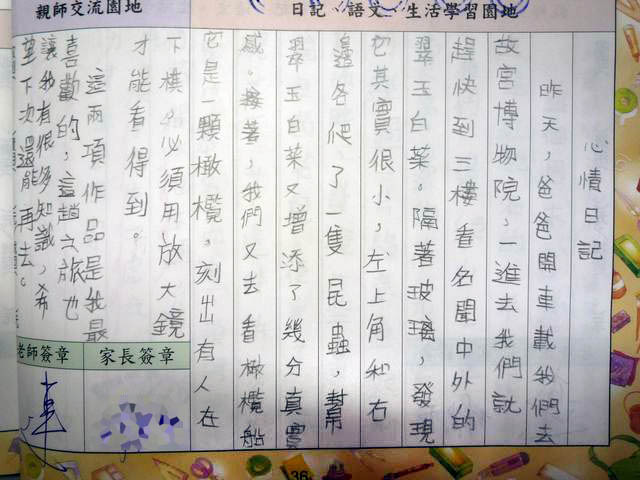 親師交流園地
日記、語文、生活學習園地
心情日記
昨天，爸爸開車載我們去
故宮博物院，一進去我們就
趕快到三樓看名聞中外的
翠玉白菜。隔著玻璃，發現
它其實很小，左上角和右
邊各爬了一隻昆蟲，幫
翠玉白菜又增添了幾分真實
感。接著，我們又去看橄欖船
它是一顆橄欖，刻出有人在
下棋。必須用放大鏡
才能看得到。
這兩項作品是我最
喜歡的，這趟之旅也
讓我有很多知識，希
望下次還能再去。
老師簽章
家長簽章
36